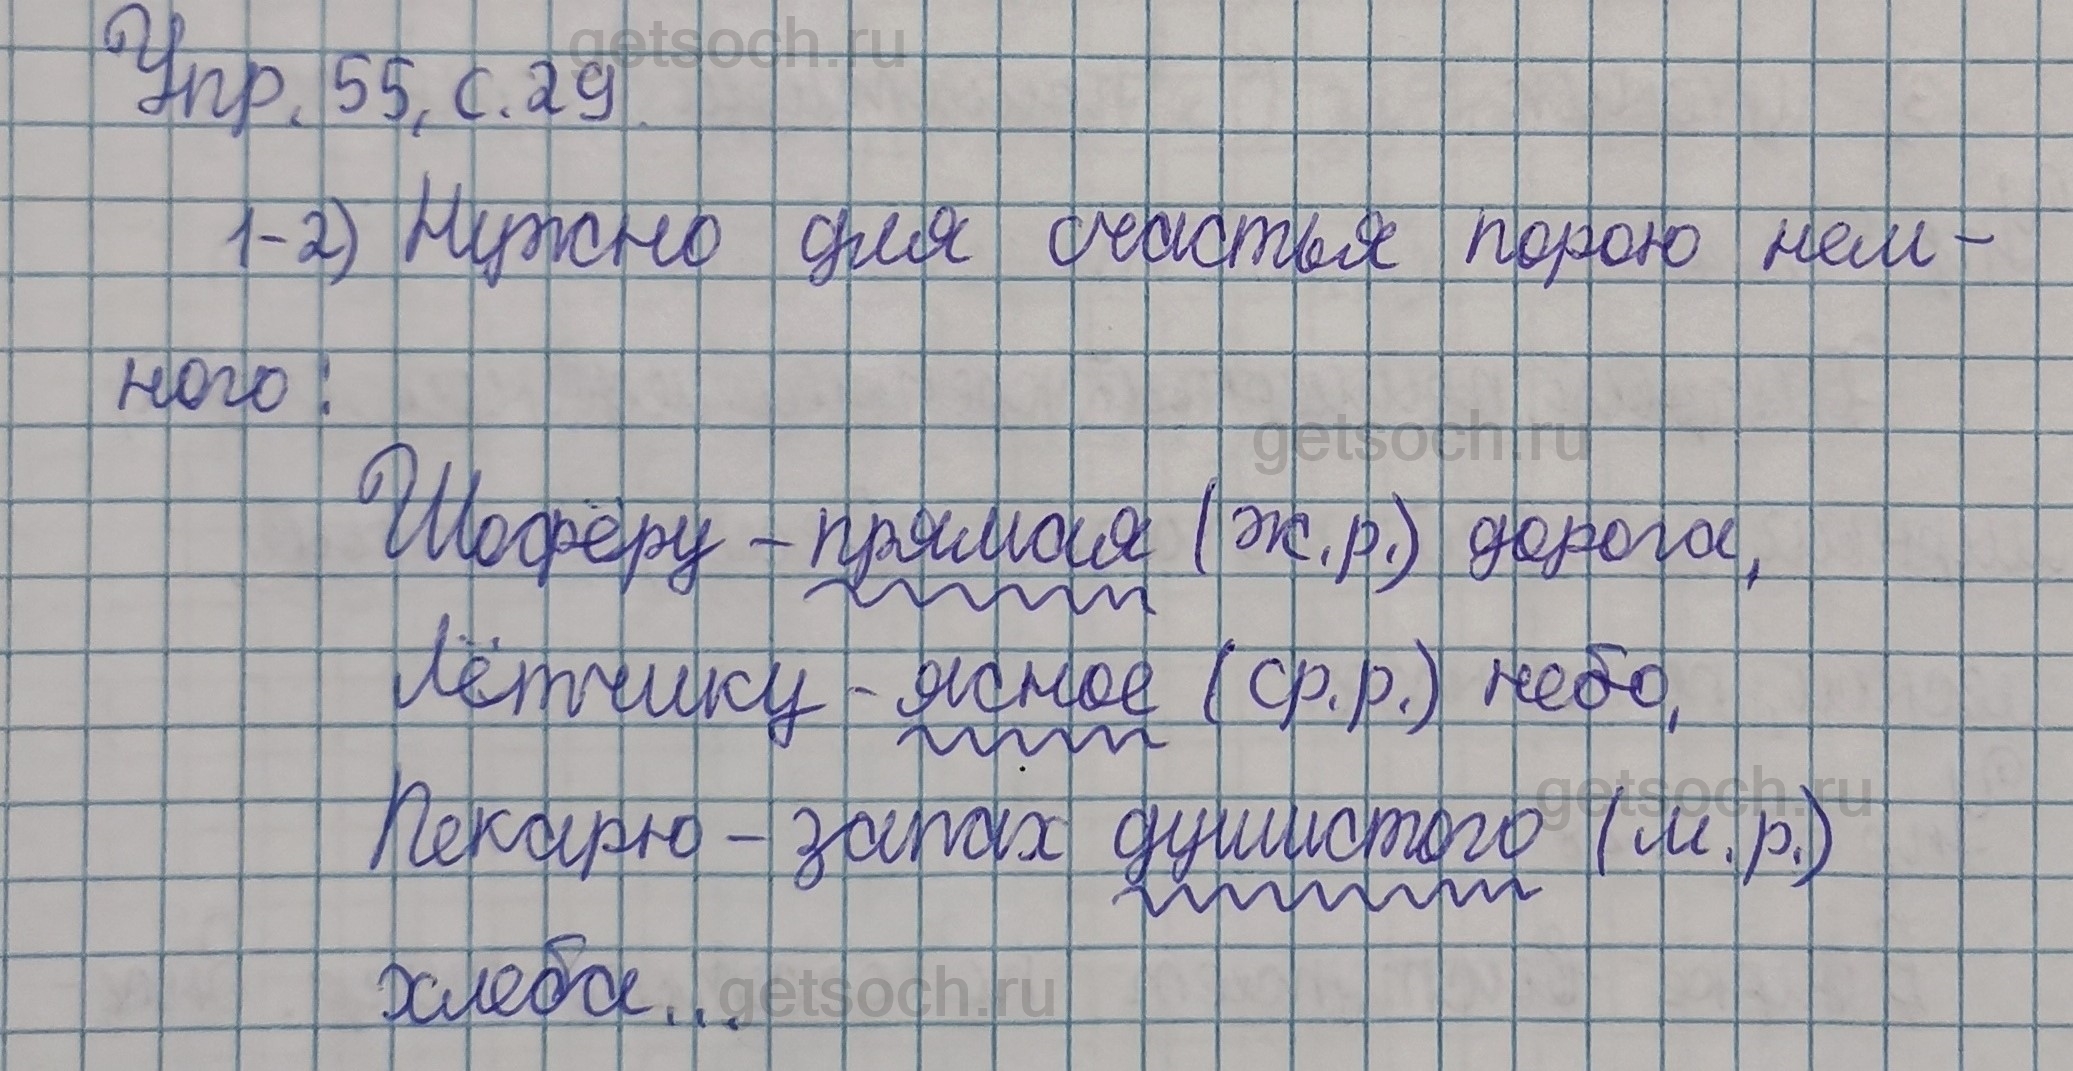 getsoch.ru
Упр. 55, с. 29.
1-2) Нужно для счастья порою нем-
ного:
getsoch.ru
Шофёру - прямая (ж.р.) дорога,
Лётчику - ясное (ср.р.) небо,
getsoch.ru
Пекарю - запах душистого (м.р.)
хлеба...
getsoch.ru